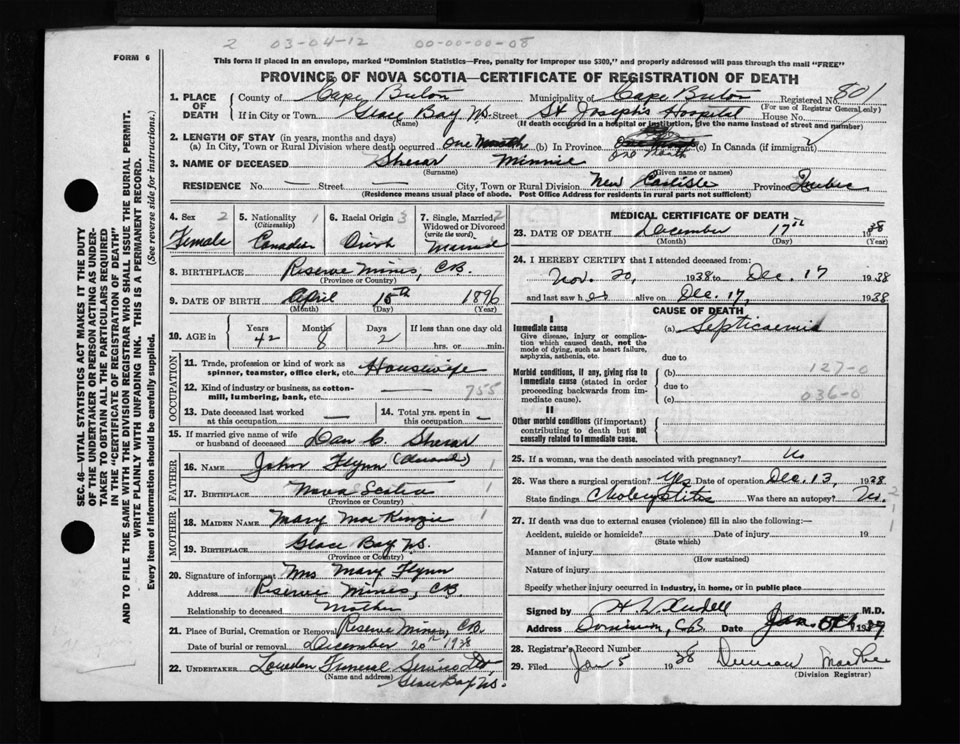 2 03-04-12 00-00-00-08
FORM 6
This form if placed in an envelope, marked "Dominion Statistics—Free, penalty for improper use $300," and properly addressed will pass through the mail "FREE"
PROVINCE OF NOVA SCOTIA—CERTIFICATE OF REGISTRATION OF DEATH
SEC. 46—VITAL STATISTICS ACT MAKES IT THE DUTY
OF THE UNDERTAKER OR PERSON ACTING AS UNDER-
TAKER TO OBTAIN ALL THE PARTICULARS REQUIRED
IN THE "CERTIFICATE OF REGISTRATION OF DEATH"
AND TO FILE THE SAME WITH THE DIVISION REGISTRAR WHO SHALL ISSUE THE BURIAL PERMIT.
WRITE PLAINLY WITH UNFADING INK. THIS IS A PERMANENT RECORD.
Every item of information should be carefully supplied. (See reverse side for instructions.)
1. PLACE OF DEATH County of Cape Breton Municipality of Cape Breton Registered No. 801
(For use of Registrar General only)
If in City or Town Glace Bay NS. Street St Joseph's Hospital House No.
(Name) (If death occurred in a hospital or institution, give the name instead of street and number)
2. LENGTH OF STAY (in years, months and days)
(a) In City, Town or Rural Division where death occurred One Month (b) In Province One Month (c) In Canada (if immigrant)
3. NAME OF DECEASED Minnie
(Surname) (Given name or names)
RESIDENCE No. — Street City, Town or Rural Division New Carlisle Province Quebec
(Residence means usual place of abode. Post Office Address for residents in rural parts not sufficient)
4. Sex 2 Female
5. Nationality (Citizenship) 1 Canadian
6. Racial Origin 3 Irish
7. Single, Married, Widowed or Divorced (write the word) 2 Married
8. BIRTHPLACE Reserve Mines, CB.
(Province or Country)
9. DATE OF BIRTH April 15th 1896
(Month) (Day) (Year)
10. AGE in Years 42 Months 8 Days 2 If less than one day old hrs. or min.
OCCUPATION
11. Trade, profession or kind of work as spinner, teamster, office clerk, etc. Housewife
12. Kind of industry or business, as cotton-mill, lumbering, bank, etc. 755
13. Date deceased last worked at this occupation — 14. Total yrs. spent in this occupation —
15. If married give name of wife or husband of deceased Dan C.
FATHER
16. NAME John Flynn (Deceased) 1
17. BIRTHPLACE Nova Scotia 1
(Province or Country)
MOTHER
18. MAIDEN NAME Mary MacKenzie 1
19. BIRTHPLACE Glace Bay NS.
(Province or Country)
20. Signature of informant Mrs Mary Flynn
Address Reserve Mines, CB
Relationship to deceased Mother
21. Place of Burial, Cremation or Removal Reserve Mines, CB.
Date of burial or removal December 20th 1938
22. UNDERTAKER Funeral Service Ltd
(Name and address) Glace Bay NS.
MEDICAL CERTIFICATE OF DEATH
23. DATE OF DEATH December 17th 1938
(Month) (Day) (Year)
24. I HEREBY CERTIFY that I attended deceased from:
Nov. 20, 1938 to Dec. 17 1938
and last saw her alive on Dec. 17, 1938
CAUSE OF DEATH
I
Immediate cause (a) Septicaemia
Give disease, injury or complication which caused death, not the mode of dying, such as heart failure, asphyxia, asthenia, etc.
due to
Morbid conditions, if any, giving rise to immediate cause (stated in order proceeding backwards from immediate cause). (b) 127-0
due to
(c) 036-0
II
Other morbid conditions (if important) contributing to death but not causally related to immediate cause.
25. If a woman, was the death associated with pregnancy? No
26. Was there a surgical operation? Yes Date of operation Dec. 13, 1938
State findings Was there an autopsy? No.
27. If death was due to external causes (violence) fill in also the following:—
Accident, suicide or homicide? Date of injury 19
(State which)
Manner of injury
(How sustained)
Nature of injury
Specify whether injury occurred in industry, in home, or in public place
Signed by M.D.
Address Dominion, CB Date Jan. 19
28. Registrar's Record Number
29. Filed Jan 5 1938 Duncan
(Division Registrar)